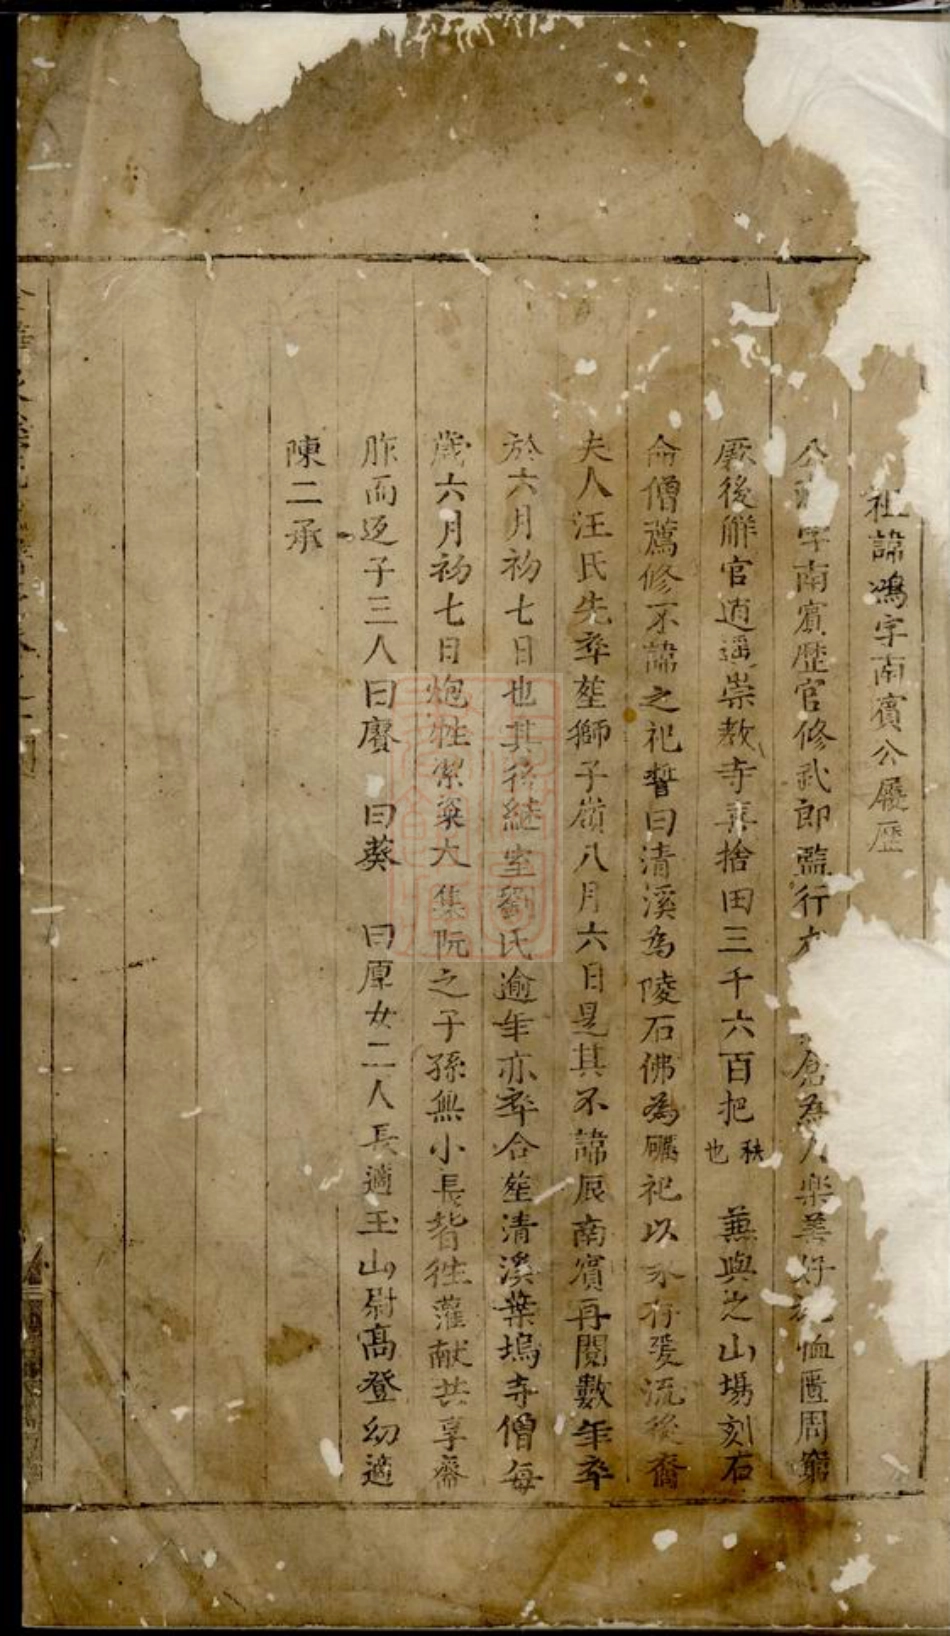 祖諱鴻字南賓公履歷
公 字南賓歷官修武郎監行 倉為人樂善好 恤匱周窮
厥後觧官逍遥崇教寺喜捨田三千六百把秩也 兼與之山塲刻石
命僧薦修不諱之祀誓曰清溪為陵石佛為礪祀以永存爰流後裔
夫人汪氏先卒塟獅子嶺八月六日是其不諱辰南賓再閱數年卒
於六月初七日也其後継室劉氏逾年亦卒合塟清溪葉塢寺僧每
歲六月初七日炮牲潔粢大集阮之子孫無小長皆徃灌献共享齋
胙而返子三人曰賡 曰蔡 曰厚女二人長適玉山尉高登幼適
陳二承